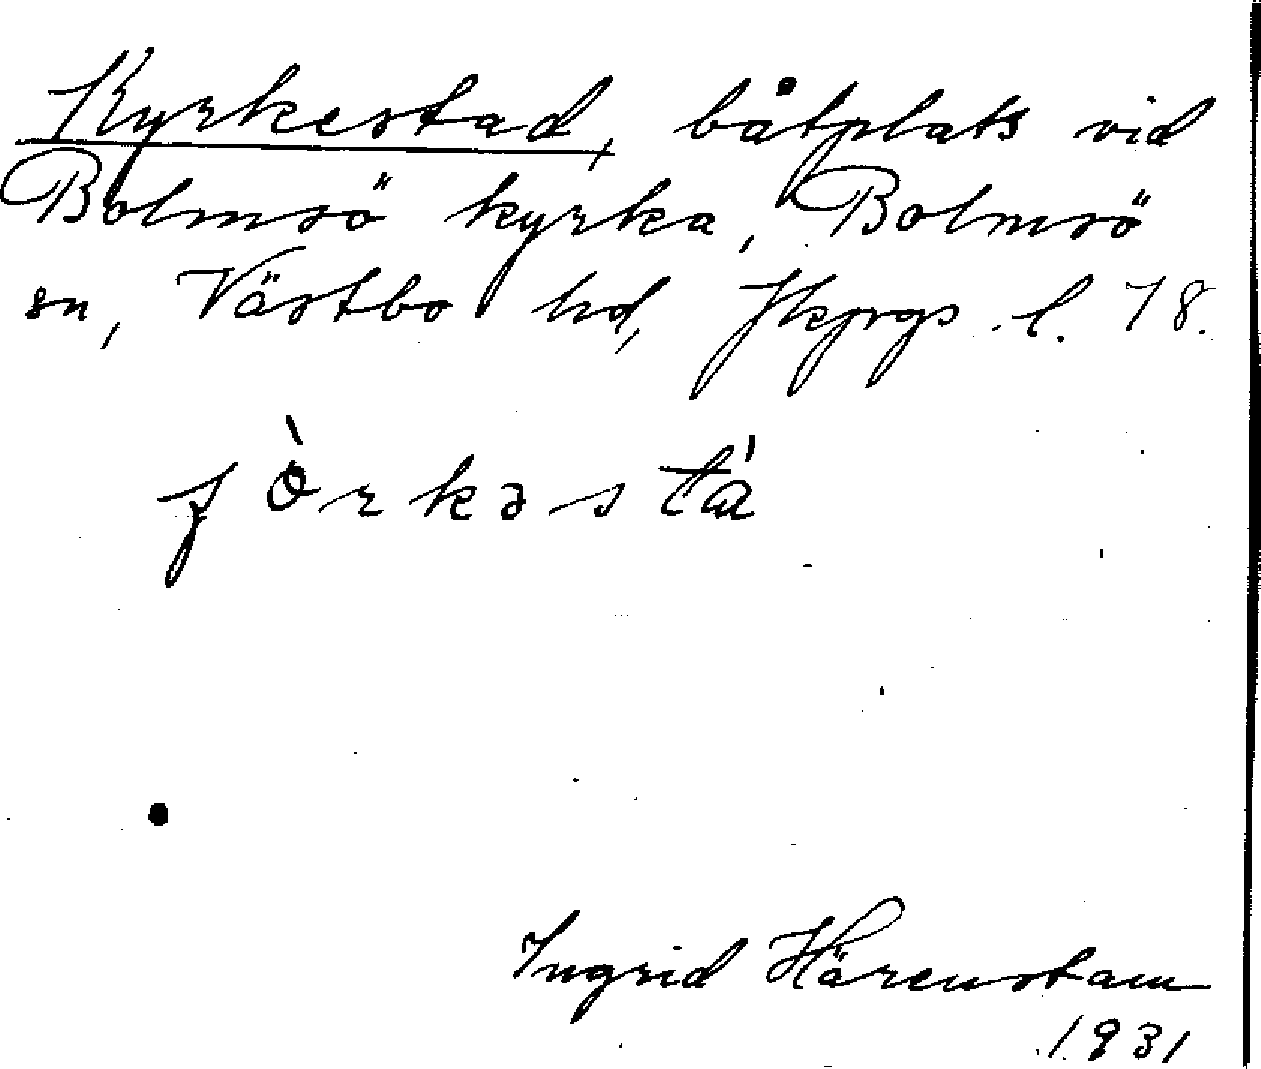 Kyrkestad, båtplats vid
Bolmsö kyrka, Bolmsö
sn, Västbo hd, Jkpgs l. 78.
Ingrid Härenstam
1931